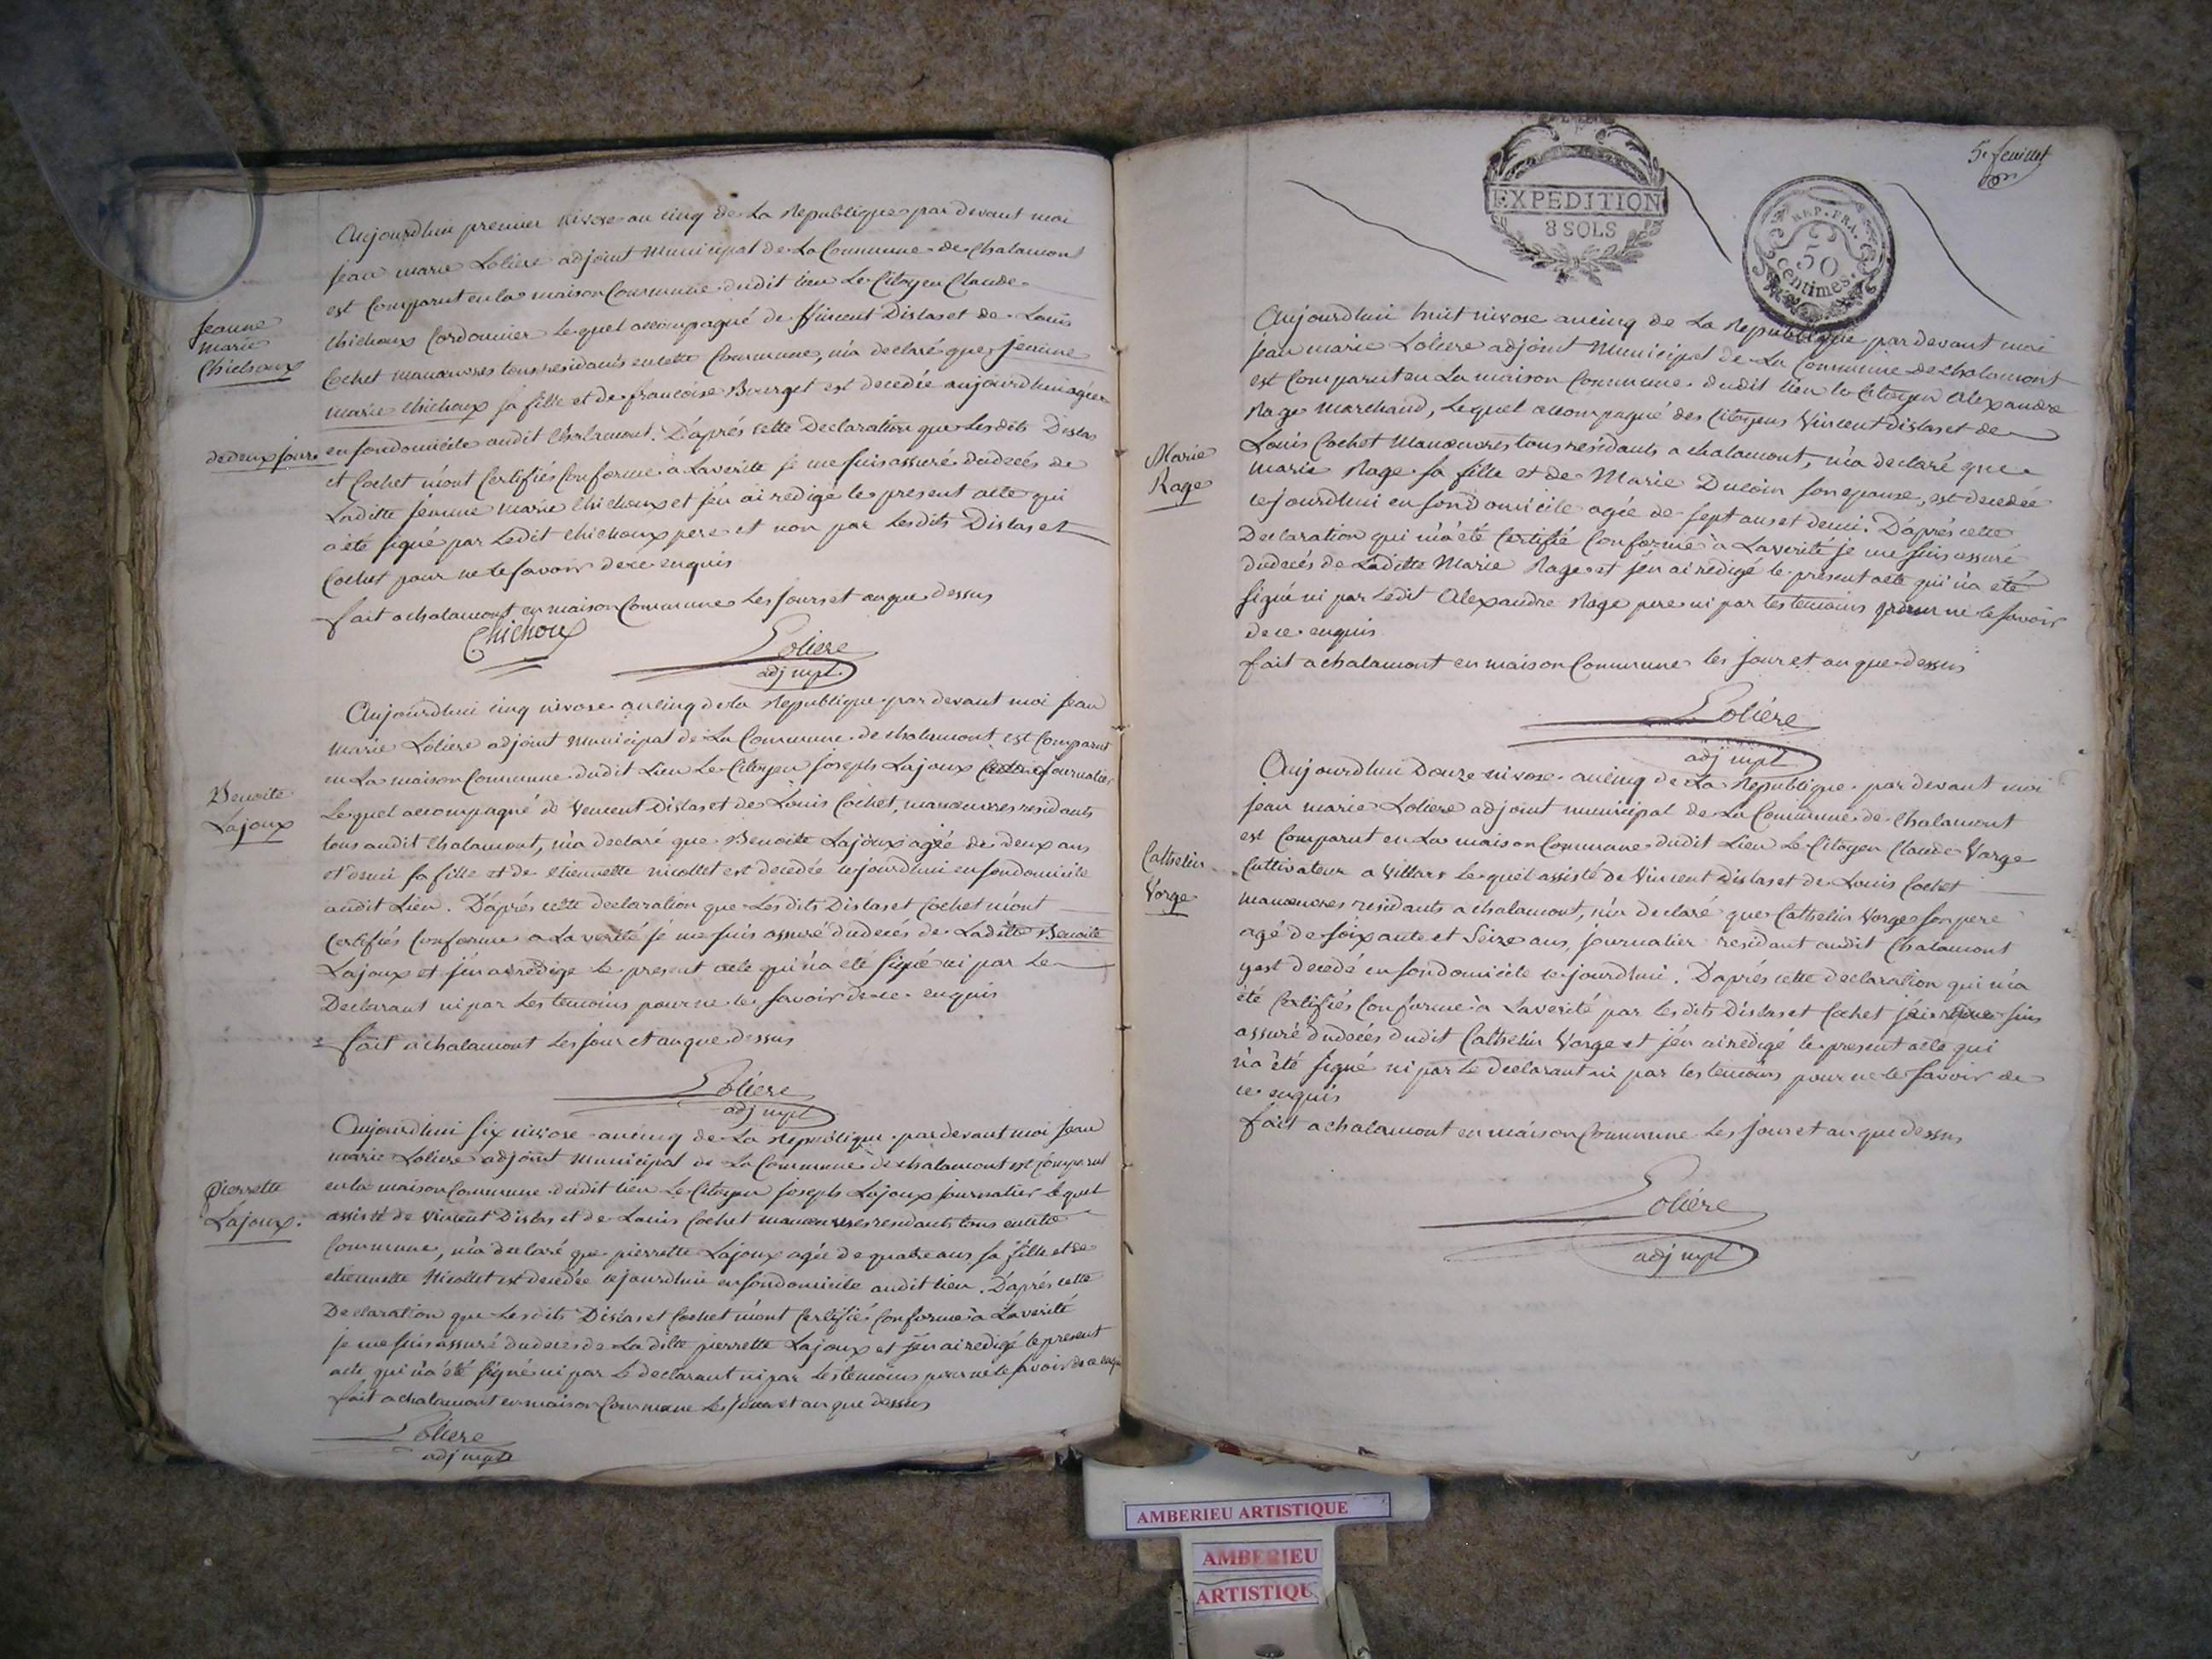 Aujourdhui premier nivose an cinq de La Republique par devant moi
Jean marie Loliere adjoint Municipal de La Commune de Chalamont
est Comparut en la maison Commune dudit lieu Le Citoyen Claude
Jeanne
marie
Chichoux
Chichoux Cordonnier Lequel accompagné de Vincent Dislas et de Louis
Cochet manœuvres tous residants en cette Commune, m'a declaré que Jeanne
marie Chichoux sa fille et de francoise Bourget est decedée aujourdhui agée
de deux jours en son domicile audit Chalamont. D'aprés cette Declaration que Lesdits Dislas
et Cochet m'ont Certifiés Conforme à La verite je me suis assuré du decés de
Laditte Jeanne marie Chichoux et j'en ai redigé le present acte qui
a été signé par Ledit Chichoux pere et non par Lesdits Dislas et
Cochet pour ne le savoir de ce enquis
fait a chalamont en maison Commune Les jours et an que dessus
Chichoux
Loliere
adj mpl.
Aujourdhui cinq nivose an cinq de la Republique par devant moi Jean
marie Loliere adjoint Municipal de La Commune de chalamont est Comparut
en La maison Commune dudit Lieu Le Citoyen Joseph Lajoux journalier
Benoite
Lajoux
Lequel accompagné de Vincent Dislas et de Louis Cochet, manœuvres residants
tous audit Chalamont, m'a declaré que Benoite Lajoux agée de deux ans
et demi sa fille et de etiennette nicollet est decedée cejourdhui en son domicile
audit Lieu. D'aprés cette declaration que Lesdits Dislas et Cochet m'ont
Certifiés Conforme a La verité je me suis assuré du decés de Laditte Benoite
Lajoux et j'en ai redigé le present acte qui n'a été signé ni par Le
Declarant ni par Les temoins pour ne le savoir de ce enquis
fait a chalamont Les jour et an que dessus
Loliere
adj mpl
Aujourdhui six nivose an cinq de La Republique par devant moi Jean
marie Loliere adjoint Municipal de La Commune de chalamont est Comparut
Pierrette
Lajoux.
en la maison Commune dudit lieu Le Citoyen Joseph Lajoux journalier Lequel
assisté de Vincent Dislas et de Louis Cochet manœuvres residants tous en cette
Commune, m'a declaré que pierrette Lajoux agée de quatre ans sa fille et de
etiennette Nicollet est decedée cejourdhui en son domicile audit lieu. D'aprés cette
Declaration que Lesdits Dislas et Cochet m'ont Certifiés Conforme à La verité
je me suis assuré du decés de La ditte pierrette Lajoux et j'en ai redigé le present
acte, qui n'a été signé ni par Le declarant ni par Les temoins pour ne le savoir de ce enquis
fait a chalamont en maison Commune Les jour et an que dessus
Loliere
adj mpl
5e feuillet
EXPEDITION
8 SOLS
REP. FRA.
50
centimes.
Aujourdhui huit nivose an cinq de La Republique par devant moi
Jean marie Loliere adjoint Municipal de La Commune de chalamont
est Comparut en La maison Commune dudit lieu le Citoyen Alexandre
Rage Marchand, Lequel accompagné des Citoyens Vincent Dislas et de
Marie
Rage
Louis Cochet Manœuvres tous residants a chalamont, m'a declaré que
marie Rage sa fille et de Marie Ducoin son epouse, est decedée
cejourdhui en son domicile agée de sept ans et demi. D'aprés cette
Declaration qui m'a été Certifié Conforme à La verité je me suis assuré
du decés de Laditte Marie Rage et j'en ai redigé le présent acte qui n'a été
signé ni par Ledit Alexandre Rage pere ni par les temoins pour ne le savoir
de ce enquis
fait a chalamont en maison Commune les jour et an que dessus
Loliére
adj mpl
Aujourdhui Douze nivose an cinq de La Republique par devant moi
Jean marie Loliere adjoint municipal de La Commune de Chalamont
est Comparut en La maison Commune dudit Lieu Le Citoyen Claude Vorge
Cathelin
Vorge
Cultivateur a Villars Lequel assisté de Vincent Dislas et de Louis Cochet
manœuvres residants a chalamont, m'a declaré que Cathelin Vorge son pere
agé de soixante et seize ans, journalier residant audit Chalamont
y est decedé en son domicile cejourdhui. D'aprés cette declaration qui m'a
été Certifiés Conforme à La verité par Lesdits Dislas et Cochet je me suis
assuré du decés dudit Cathelin Vorge et j'en ai redigé le present acte qui
n'a été signé ni par Le Declarant ni par les temoins pour ne le savoir de
ce enquis
fait a chalamont en maison Commune Les jour et an que dessus
Loliére
adj mpl
AMBERIEU ARTISTIQUE
AMBERIEU
ARTISTIQU